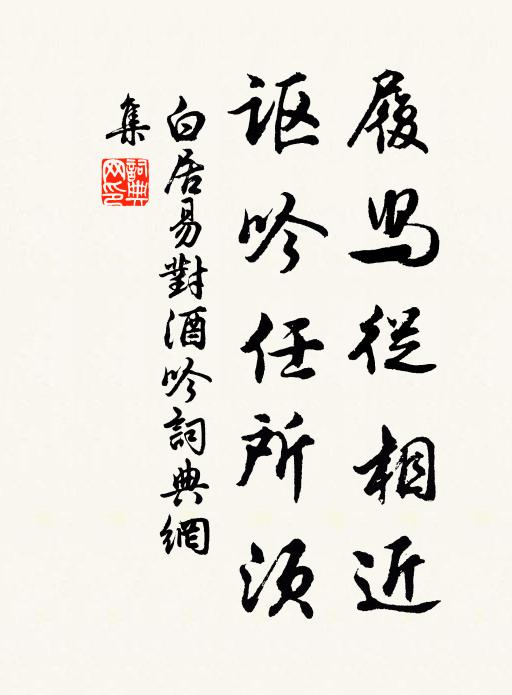 履舄從相近
謳吟任所須
白居易對酒吟詞典網
集
詞典
网印